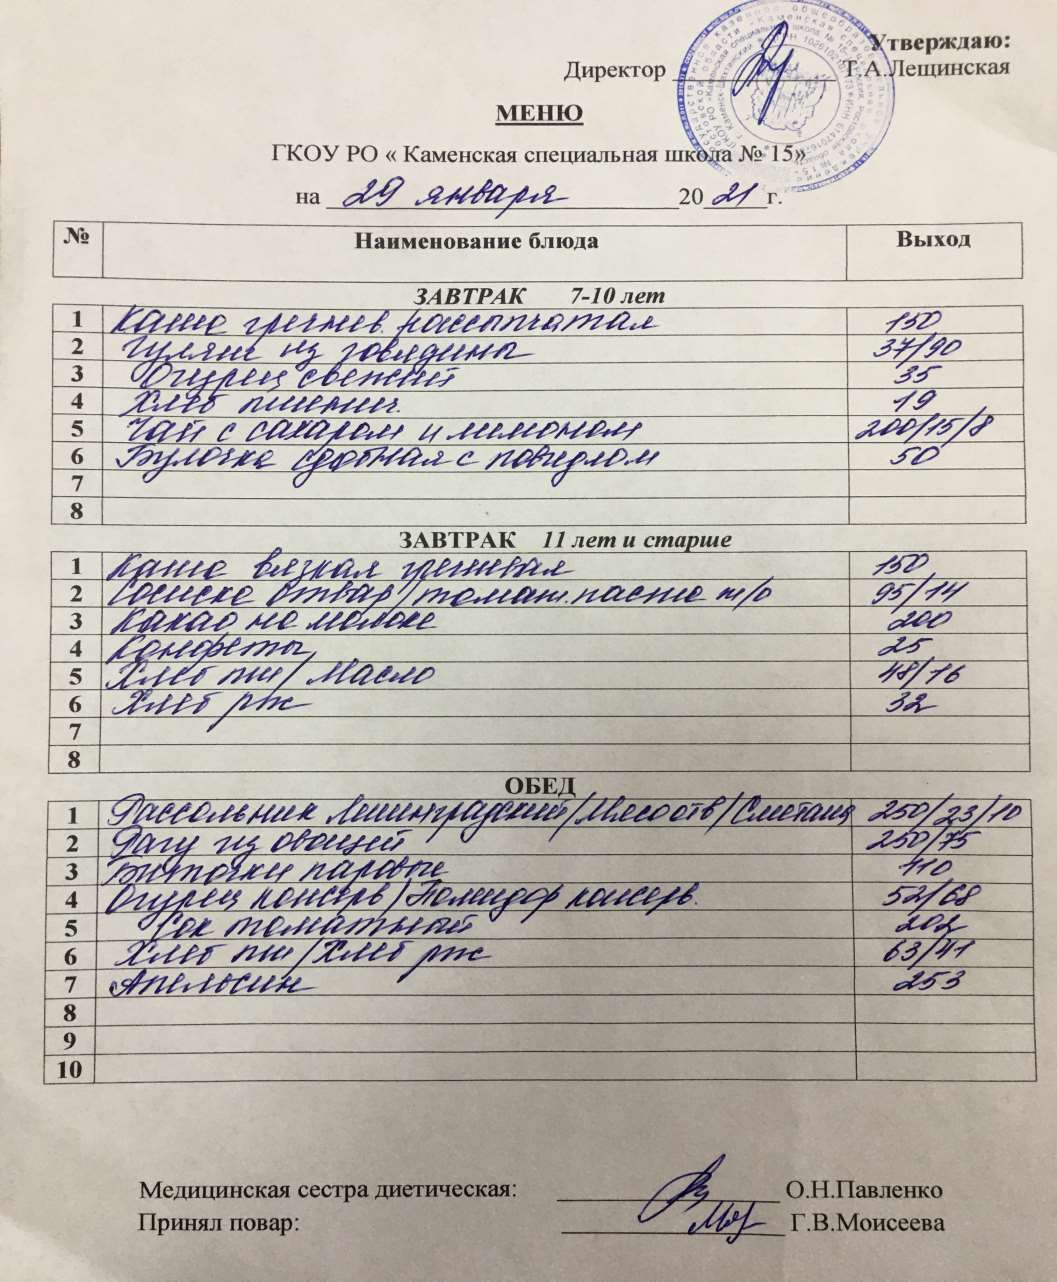 Утверждаю:
Директор Т.А.Лещинская
МЕНЮ
ГКОУ РО « Каменская специальная школа № 15»
на 29 января 2021 г.
№ Наименование блюда Выход
ЗАВТРАК 7-10 лет
1 Каша гречнев. рассыпчатая 150
2 Гуляш из говядины 37/90
3 Огурец свежий 35
4 Хлеб пшенич. 19
5 Чай с сахаром и лимоном 200/15/8
6 Булочка сдобная с повидлом 50
7
8
ЗАВТРАК 11 лет и старше
1 Каша вязкая гречневая 150
2 Сосиска отвар/томат.паста т/о 95/14
3 Какао на молоке 200
4 Конфеты 25
5 Хлеб пш/Масло 48/16
6 Хлеб рж 32
7
8
ОБЕД
1 Рассольник Ленинградский/Мясо отв/Сметана 250/23/10
2 Рагу из овощей 250/75
3 Биточки паровые 110
4 Огурец консерв/Помидор консерв. 52/68
5 Сок томатный 202
6 Хлеб пш/Хлеб рж 63/41
7 Апельсин 253
8
9
10
Медицинская сестра диетическая: О.Н.Павленко
Принял повар: Г.В.Моисеева